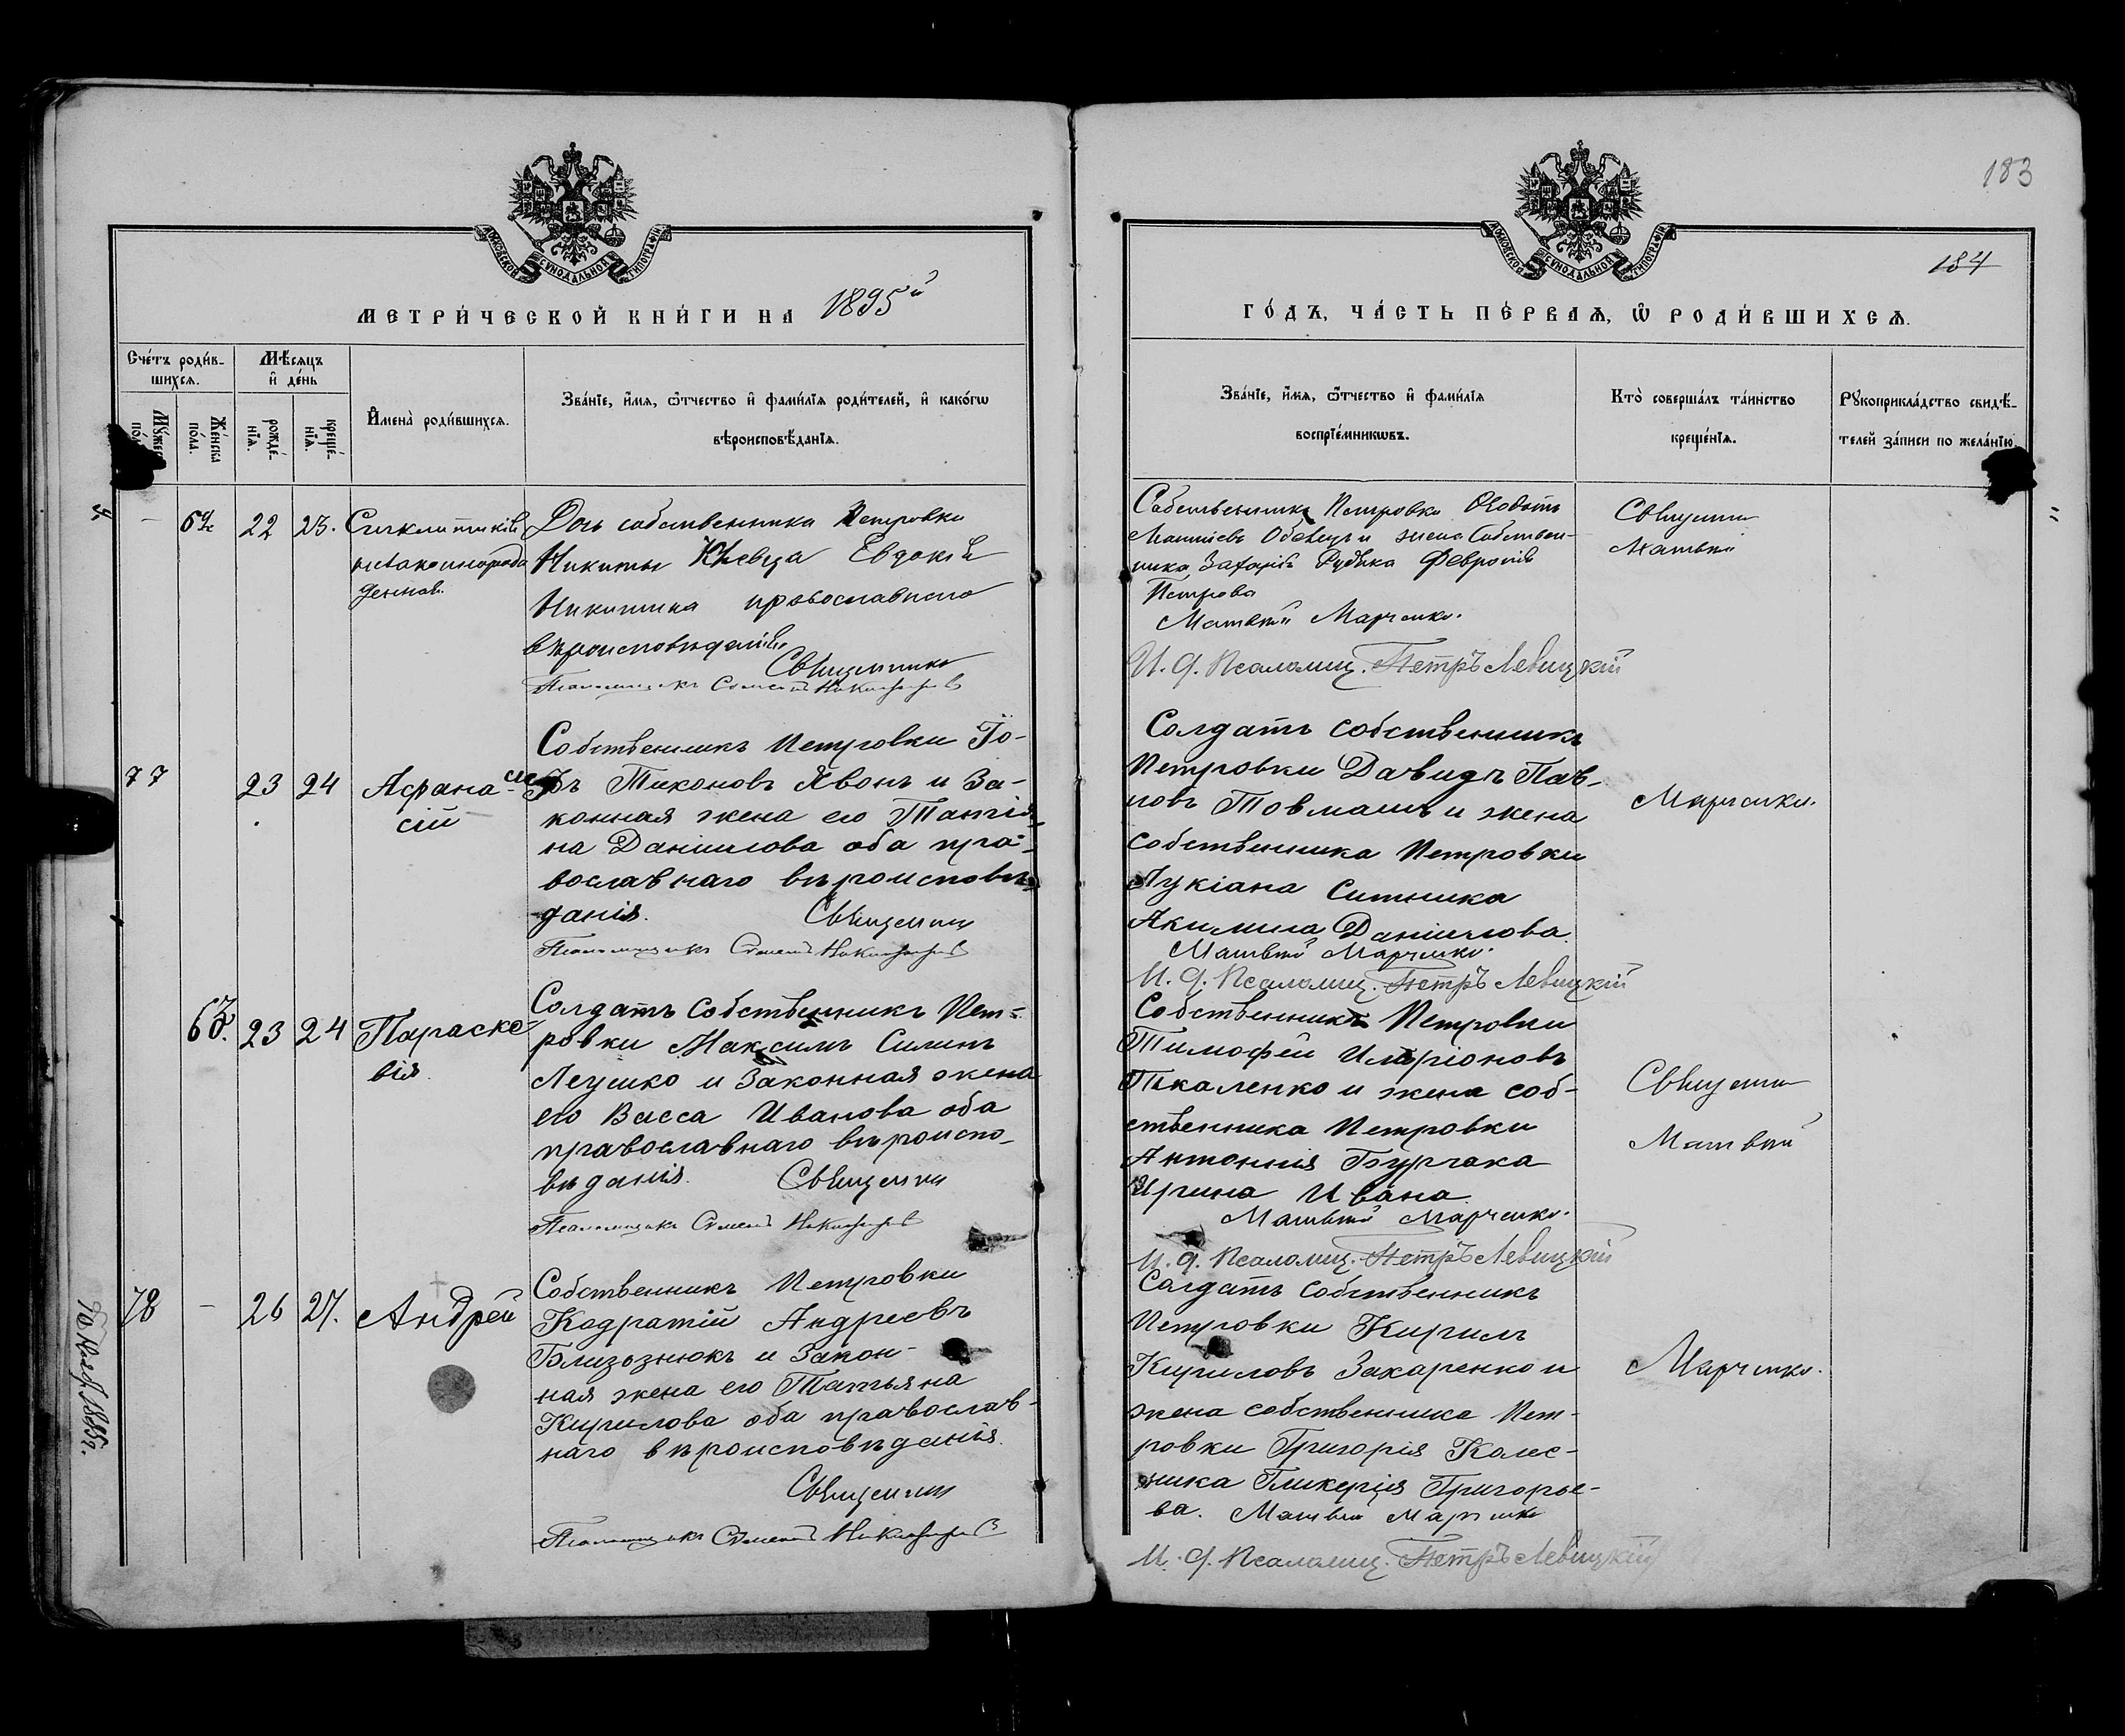 183
184
МОСКОВСКОЙ СѴНОДАЛЬНОЙ ТИПОГРАФІИ
МОСКОВСКОЙ СѴНОДАЛЬНОЙ ТИПОГРАФІИ
МЕТРИ́ЧЕСКОЙ КНИ́ГИ НА 1895й
ГО́ДЪ, ЧА́СТЬ ПЕ́РВАѦ, Ѡ҆ РОДИ́ВШИХСѦ.
Сче́тъ роди́в-
шихсѧ.
Мѣ́сѧцъ
и҆ де́нь
Же́нска
по́ла.
рожде́-
нїѧ.
креще́-
нїѧ.
И҆мена̀ роди́вшихсѧ.
Зва́нїе, и҆́мѧ, ѻ҆́тчество и҆ фами́лїѧ роди́телей, и҆ како́гѡ
вѣроисповѣ́данїѧ.
Зва́нїе, и҆́мѧ, ѻ҆́тчество и҆ фами́лїѧ
воспрїе́мникѡвъ.
Кто̀ соверша́лъ та́инство
креще́нїѧ.
Рꙋкоприкла́дство свидѣ́-
телей за́писи по жела́нїю.
22 23.
Дочь собственника Петровки
Никиты Евдокія
Никитина православнаго
вѣроисповѣданія
Священникъ
Псаломщикъ Симеонъ Никифоровъ
Собственникъ Петровки
жена Собствен-
ника Захарія Рудыка Февронія
Петрова
Матвѣй Марченко.
И. д. Псаломщ. Петръ Левицкій
Священни
Матвѣй
77 23 24 Афана-
сій
Собственникъ Петровки Іо-
сифъ Тихоновъ Явонъ и За-
конная жена его Татія-
на Даніилова оба пра-
вославнаго вѣроисповѣ-
данія. Священни
Псаломщикъ Симеонъ Никифоровъ
Солдатъ собственникъ
Петровки Давидъ Пав-
ловъ Товмашъ и жена
собственника Петровки
Лукіана Ситника
Акилина Даніилова.
Матвѣй Марченко.
И. д. Псаломщ. Петръ Левицкій
Марченко.
63. 23 24 Параске-
вія.
Солдатъ собственникъ Пет-
ровки Максимъ Силинъ
Леушко и Законная жена
его Васса Иванова оба
православнаго вѣроиспо-
вѣданія. Священни
Псаломщикъ Симеонъ Никифоровъ
Собственникъ Петровки
Тимофей Иларіоновъ
Ткаленко и жена соб-
ственника Петровки
Антонія Бурлака
Ирина Ивана
Матвѣй Марченко.
И. д. Псаломщ. Петръ Левицкій
Священни
Матвѣй
78 – 26 27. Андрей
Собственникъ Петровки
Кодратій Андреевъ
Близьзнюкъ и Закон-
ная жена его Татьяна
Кирилова оба православ-
наго вѣроисповѣданія.
Священни
Псаломщикъ Симеонъ Никифоровъ
Солдатъ Собственникъ
Петровки Кирилъ
Кириловъ Захаренко и
жена собственника Пет-
ровки Григорія Колес-
ника Гликерія Григорье-
ва. Матвѣй Марченко
И. д. Псаломщ. Петръ Левицкій
Марченко.